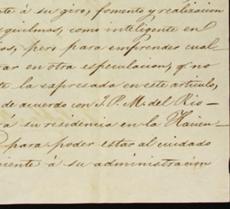 á su giro, fomento y realizacion
como inteligente en
pero para emprender cual
en otra especulacion, q.e no
la expresada en este articulo,
de acuerdo con J. P. M. del Rio
á su residencia en la
para poder estar al cuidado
á su administracion